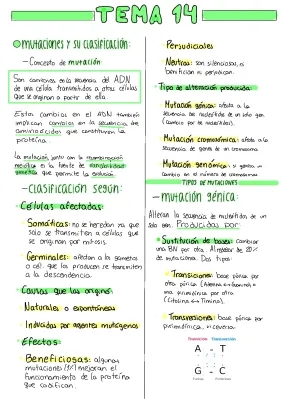 TEMA 14
MUTACIONES Y SU CLASIFICACIÓN:
– Concepto de mutación
Son cambios en la secuencia del ADN
de una célula transmitidos a otras células
que se originan a partir de ella.
Estos cambios en el ADN también
implican cambios en la secuencia de
aminoácidos que constituyen la
proteína.
La mutación junto con la recombinación
es la fuente de variabilidad
genética que permite la evolución
– CLASIFICACIÓN SEGÚN:
· Células afectadas:
Somáticas: no se heredan ya que
solo se transmiten a células que
se originan por mitosis.
Germinales: afectan a los gametos
o cél. que los producen se transmiten
a la descendencia.
· Causas que las originó:
Naturales o espontáneas
Inducidas por agentes mutágenos
· Efectos:
Beneficiosas: algunas
mutaciones mejoran el
funcionamiento de la proteína
que codifican.
Perjudiciales
Neutras: son silenciosas, ni
benefician ni perjudican.
· Tipo de alteración producida:
Mutación génica: afecta a la
secuencia de nucleótidos de un solo gen
(cambio por de nucleótidos).
Mutación cromosómica: afecta a la
secuencia de genes de un cromosoma
Mutación genómica: si genera un
cambio en el número de cromosomas
TIPOS DE MUTACIONES
– MUTACIÓN GÉNICA:
Alteran la secuencia de nucleótidos de un
solo gen. Producidas por:
· Sustitución de bases: cambio de
una BN por otra. Alrededor de 20%
de mutaciones. Dos tipos:
· Transiciones: base púrica por
otra púrica (Adenina ↔ Guanina) o
una pirimidínica por otra
(Citosina ↔ Timina).
· Transversiones: base púrica por
pirimidínica, o viceversa.
Transición Transversión
A – T
G C
Purinas Pirimidinas